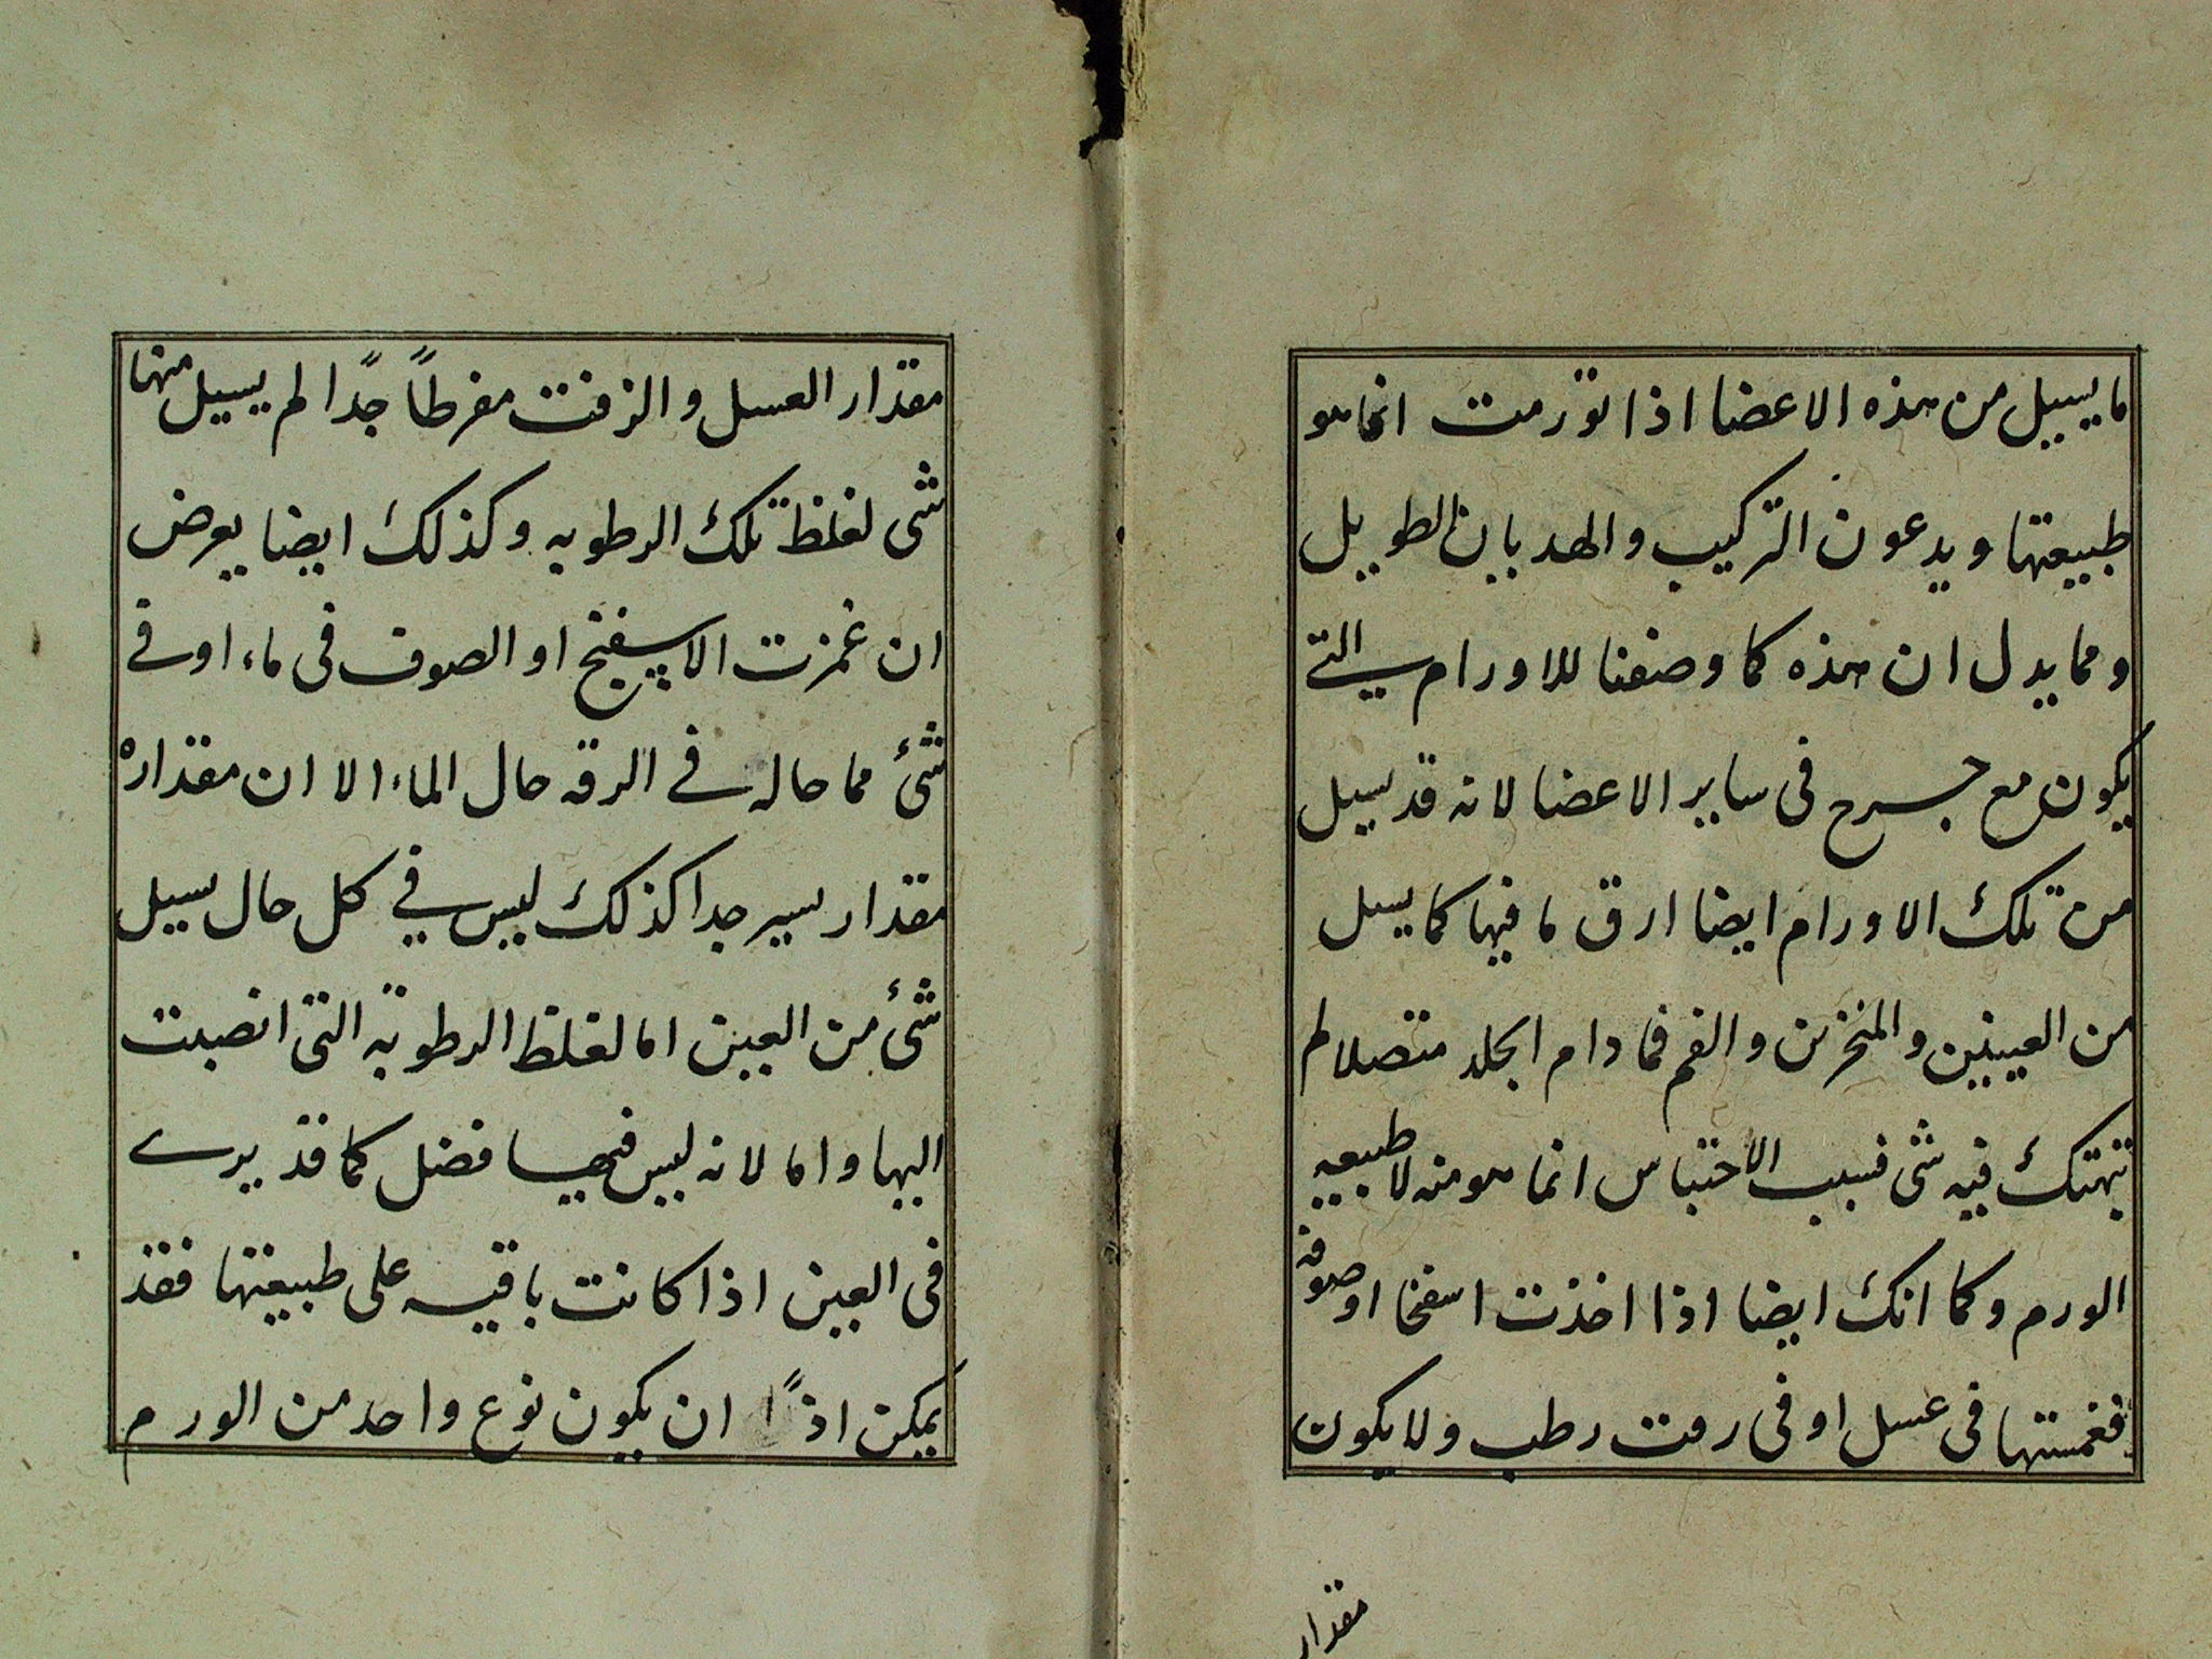 ما يسيل من هذه الاعضا اذا تورمت انما هو
طبيعتها ويدعون التركيب والهديان الطويل
ومما يدل ان هذه كما وصفنا للاورام التى
يكون مع جرح فى ساير الاعضا لانه قد يسيل
من تلك الاورام ايضا ارق ما فيها كما يسيل
من العينين والمنخرين والفم فما دام الجلد متصلا لم
تنهتك فيه شى فسبب الاحتباس انما هو منه لا طبيعيه
الورم وكما انك ايضا اذا اخذت اسفنجا او صوفه
فغمستها فى عسل او فى زفت رطب ولا يكون
مقدار
مقدار العسل والزفت مفرطاً جدًا لم يسيل منها
شى لغلظ تلك الرطوبه وكذلك ايضا يعرض
ان غمزت الاسفنج او الصوف فى ماء او فى
شئ مما حاله فى الرقه حال الماء الا ان مقداره
مقدار يسير جدا كذلك ليس فى كل حال يسيل
شئ من العين اما لغلظ الرطوبة التى انصبت
اليها واما لانه ليس فيها فضل كما قد يرى
فى العين اذا كانت باقيه على طبيعتها فقد
يمكن اذًا ان يكون نوع واحد من الورم